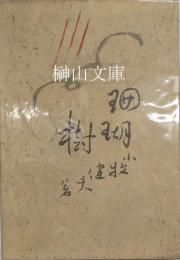 榊山文庫
珊瑚樹
小牧健夫著